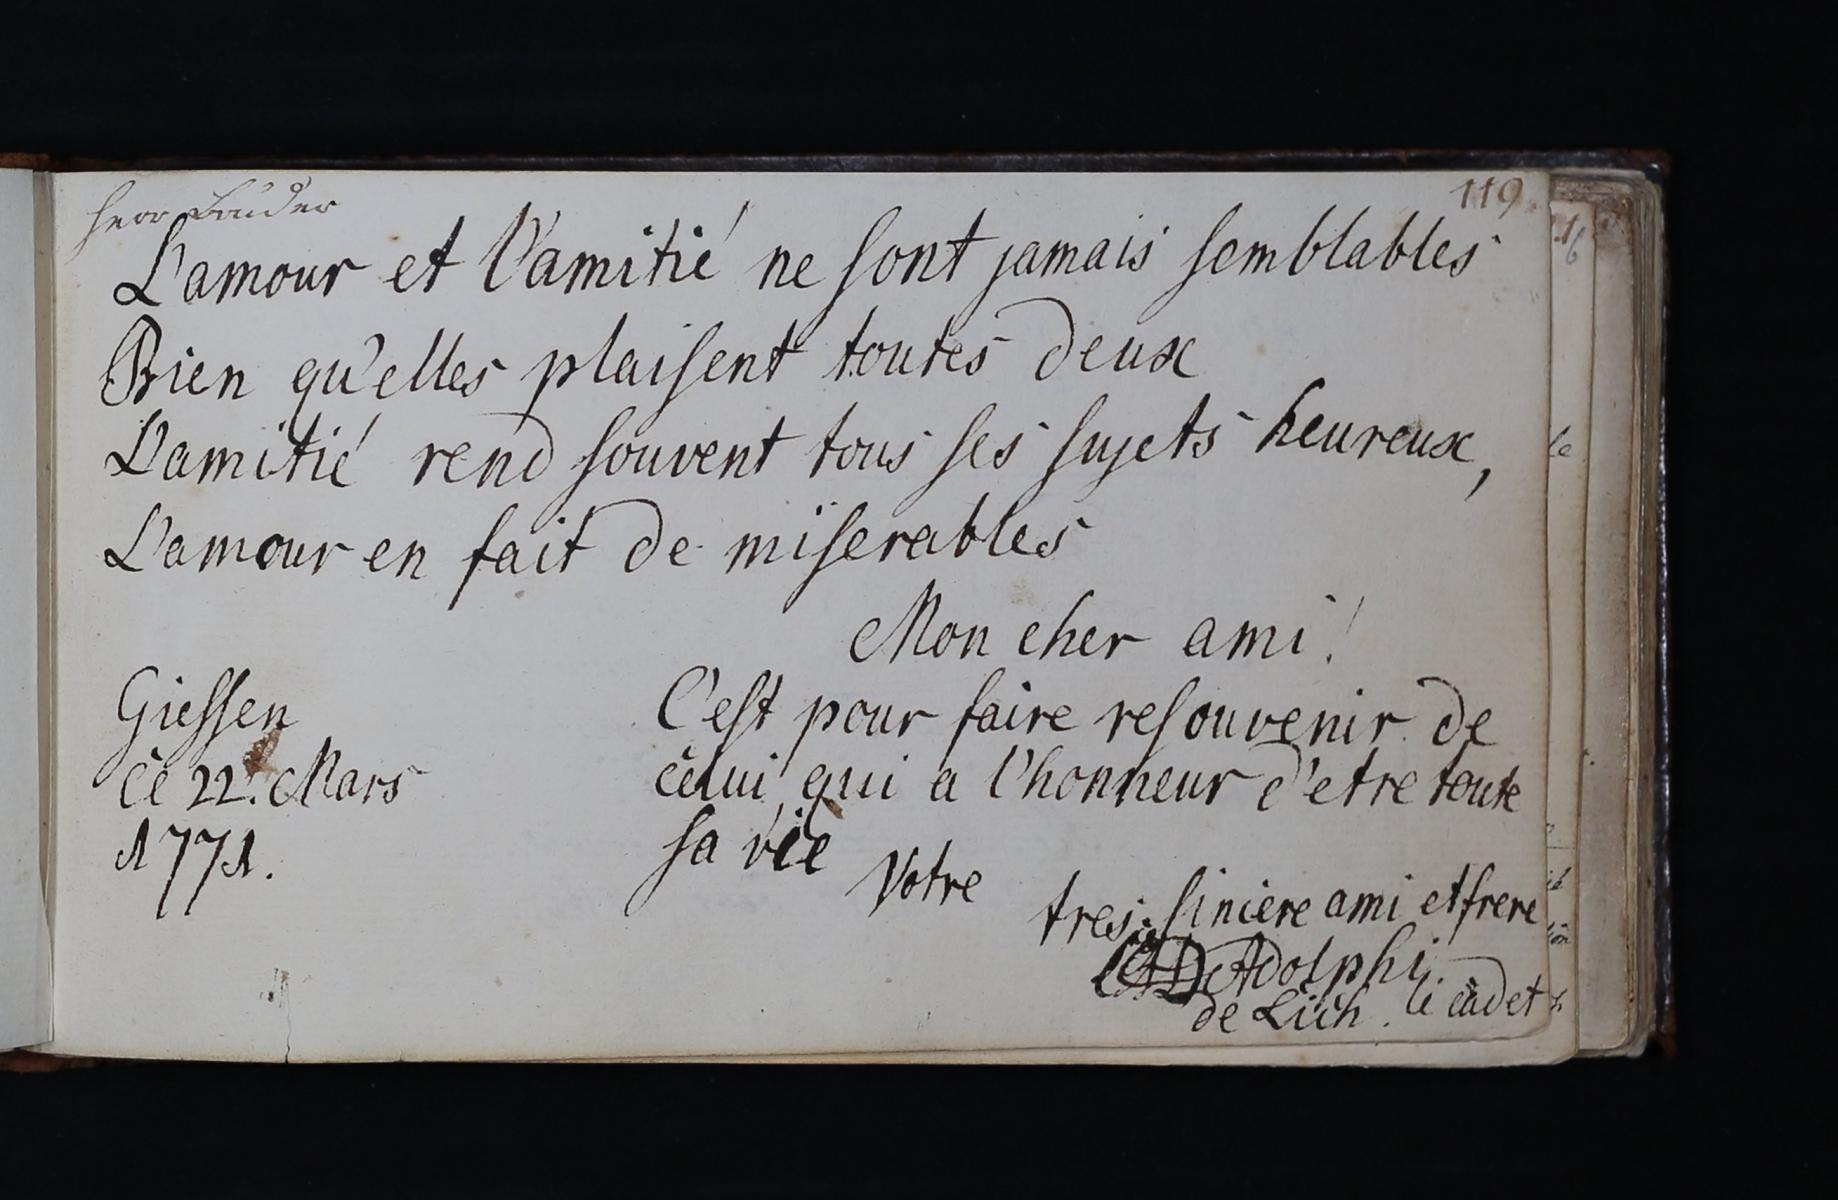 Herr Bruder
119.
L'amour et l'amitié ne sont jamais semblables
Bien qu'elles plaisent toutes deux
L'amitié rend souvent tous ses sujets heureux,
L'amour en fait de miserables
Mon cher ami!
Giessen
ce 22. Mars
1771.
C'est pour faire resouvenir de
celui, qui a l'honneur d'etre toute
sa vie
Votre
tres sincere ami et frere
Adolphi
de Lich. le cadet